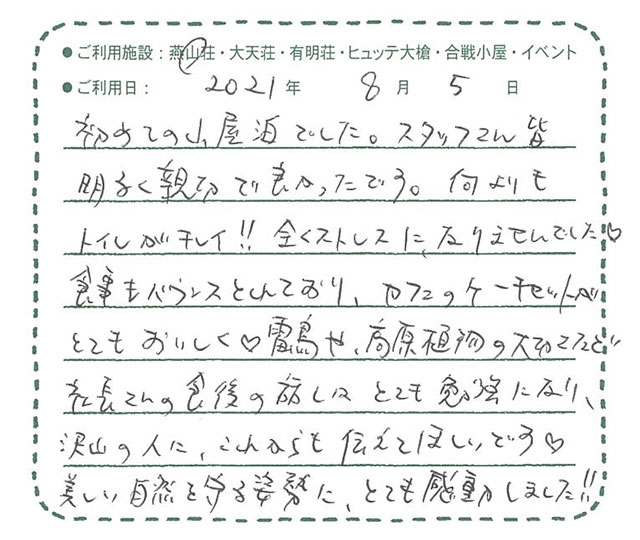 ●ご利用施設：燕山荘・大天荘・有明荘・ヒュッテ大槍・合戦小屋・イベント
●ご利用日： 2021年 8月 5日
初めての山屋泊でした。スタッフさん皆
明るく親切で良かったです。何よりも
トイレがキレイ!! 全くストレスになりませんでした♡
食事もバランスとれており、カフェのケーキセットが
とてもおいしく♡雷鳥や、高原植物の大切さなど
社長さんの食後の話しは とても勉強になり、
沢山の人に、これからも伝えてほしいです♡
美しい自然を守る姿勢に、とても感動しました!!